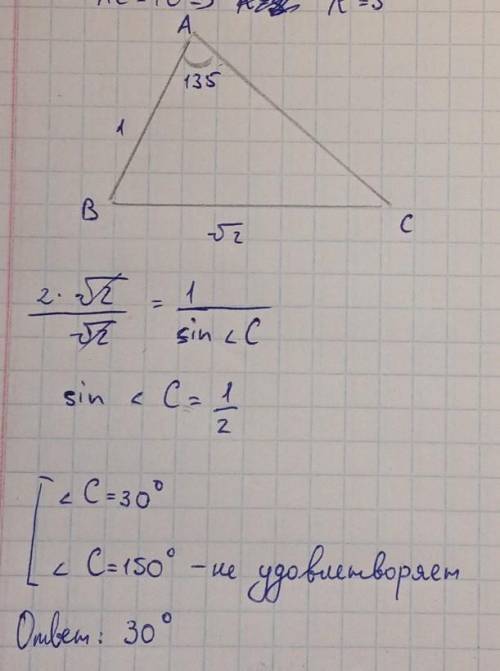 A
135
1
B
C
√2
2·√2 / √2 = 1 / sin < C
sin < C = 1/2
< C = 30°
< C = 150° – не удовлетворяет
Ответ: 30°